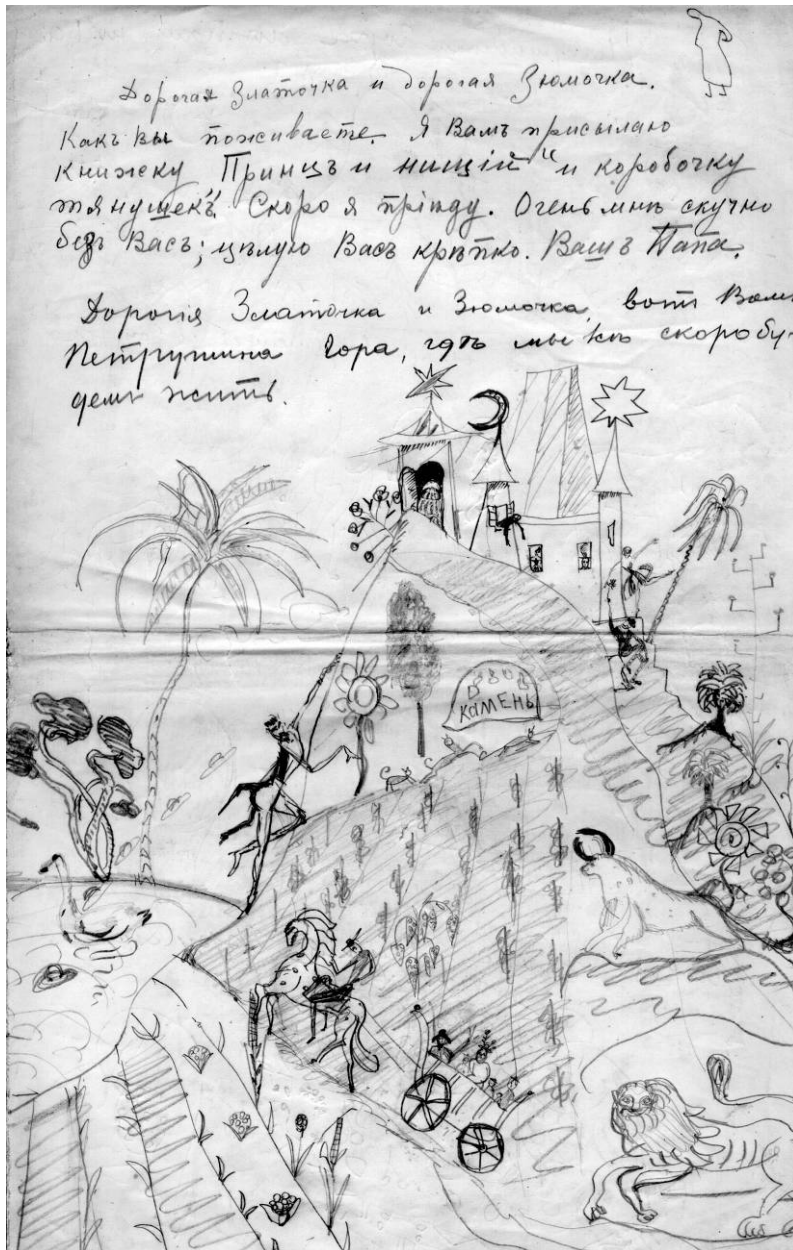 Дорогая Златочка и дорогая Зюмочка.
Какъ вы поживаете. Я Вамъ присылаю
книжку Принцъ и нищій" и коробочку
тянушекъ. Скоро я пріѣду. Очень мнѣ скучно
безъ Васъ; цѣлую Васъ крѣпко. Вашъ Папа.
Дорогія Златочка и Зюмочка, вотъ Вамъ
Петрушина Гора, гдѣ мы скоро бу-
демъ жить.
КАМЕНЬ